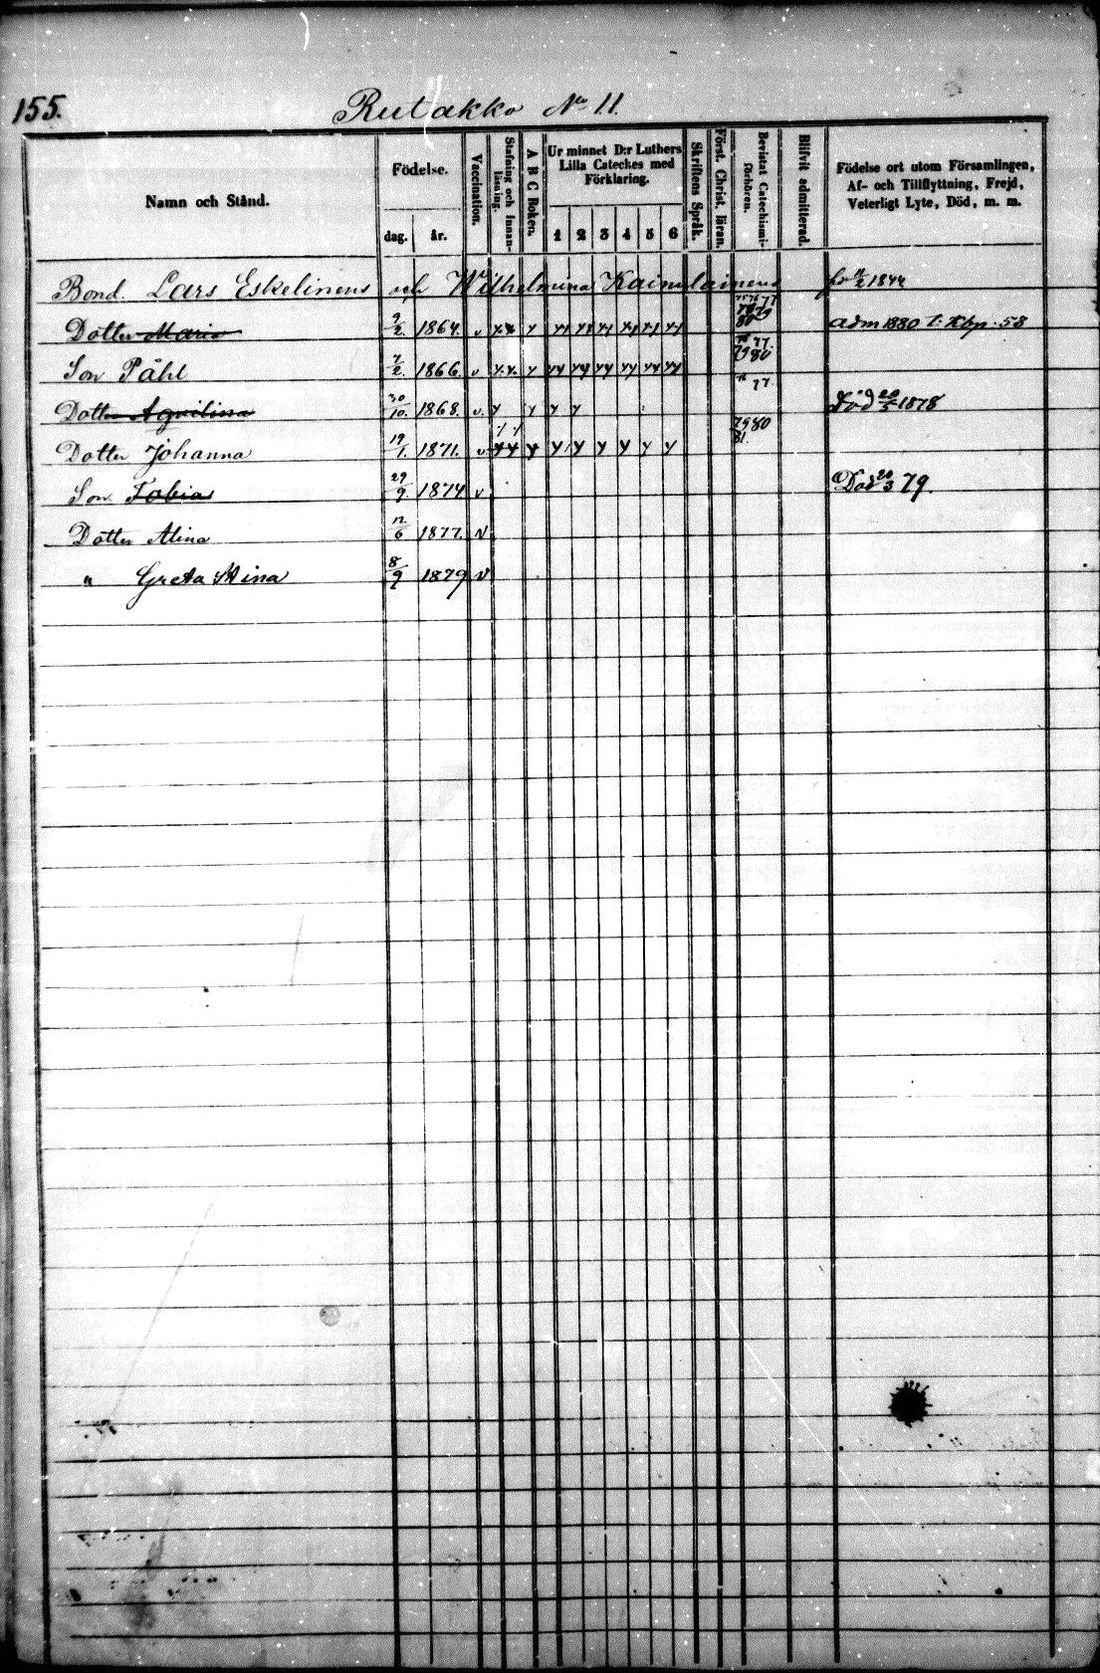 155.
Rutakko No 11.
Namn och Stånd.
Födelse.
dag.
år.
Vaccination.
Stafning och Innanläsning.
A B C Boken.
Ur minnet D:r Luthers Lilla Cateches med Förklaring.
1 2 3 4 5 6
Skriftens Språk.
Först. Christ. läran.
Bevistat Catechismiförhören.
Blifvit admitterad.
Födelse ort utom Församlingen, Af- och Tillflyttning, Frejd, Veterligt Lyte, Död, m. m.
Bond. Lars Eskelinens och Wilhelmina Kainulainens
Dotter Maria 9/2 1864. v adm 1880 t. Kbp. 58
Son Påhl 7/2. 1866. v
Dotter Aqvilina 30/10. 1868. v. Död 20/5 1878
Dotter Johanna 19/1. 1871. v.
Son Tobias 29/9 1874 v Död 20/3 79.
Dotter Alina 12/6 1877. v
" Greta Stina 8/9 1879 v